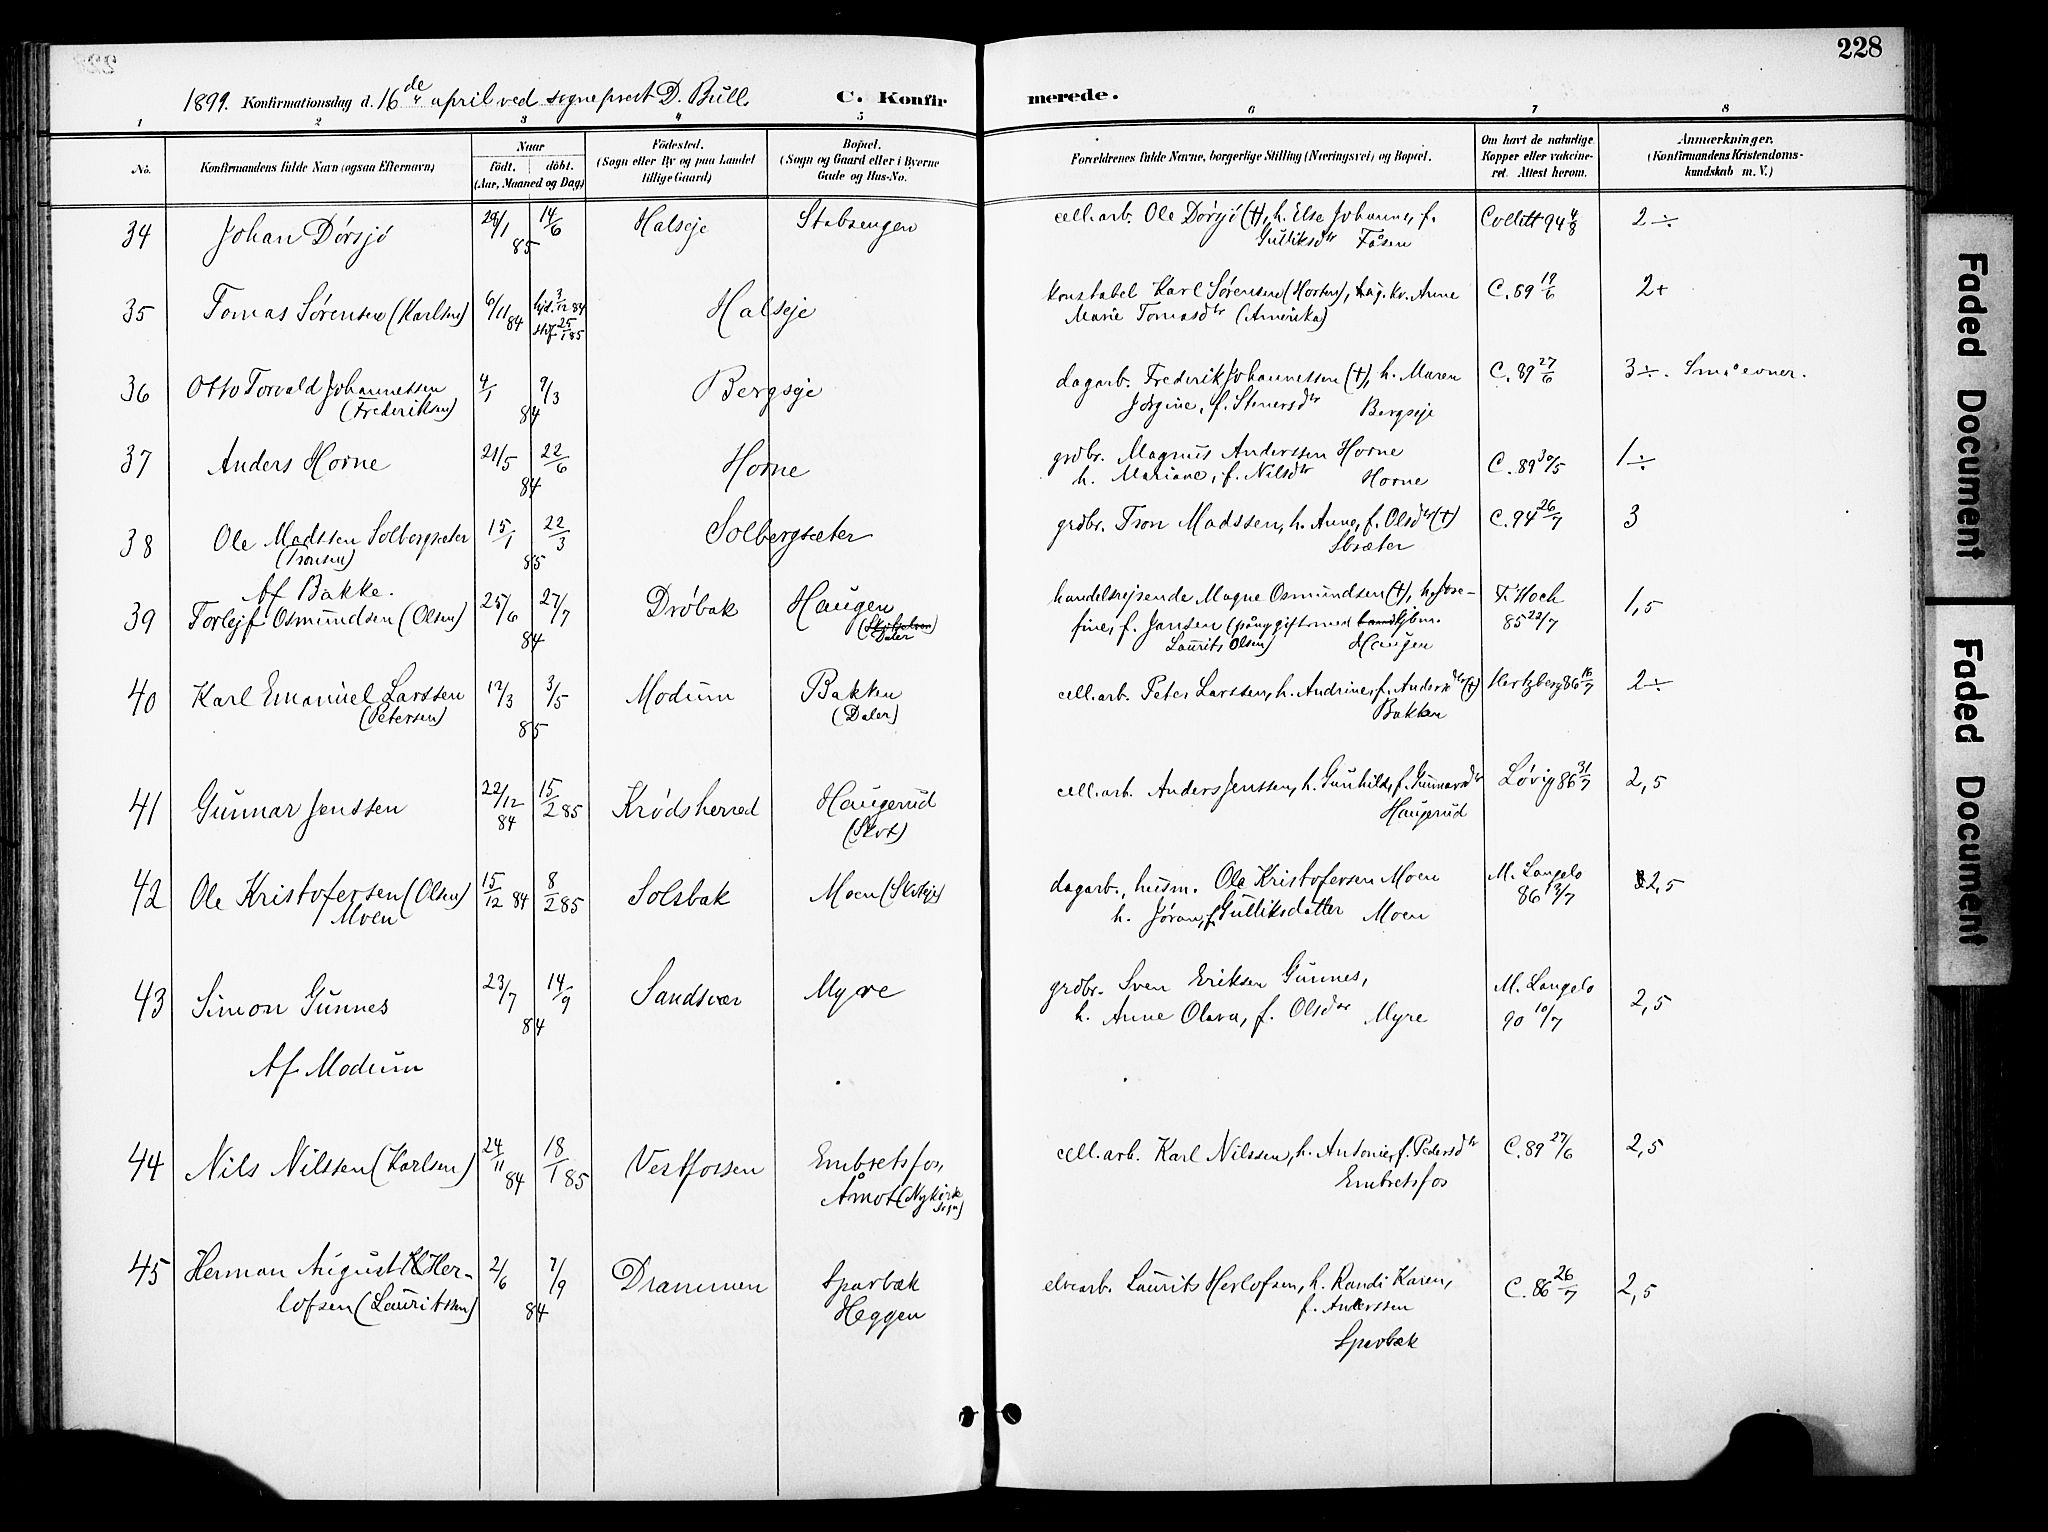 228
1899. Konfirmationsdag d. 16de april ved sogneprest D. Bull. C. Konfirmerede.
1 2 3 4 5 6 7 8
No. Konfirmandens fulde Navn (ogsaa Efternavn) Naar født. døbt. (Aar, Maaned og Dag) Fødested. (Sogn eller By og paa Landet tillige Gaard) Bopæl. (Sogn og Gaard eller i Byerne Gade og Hus-No. Forældrenes fulde Navne, borgerlige Stilling (Næringsvei) og Bopæl. Om havt de naturlige Kopper eller vakcineret. Attest herom. Anmærkninger. (Konfirmandens Kristendomskundskab m. V.)
34 Johan Dørsjø 29/1 14/6 85 Halseje Stabsengen cell.arb. Ole Dørsjø (†), h. Else Johanne, f. Gulliksdtr Fåsen Collett 94 4/8 2 ÷
35 Tomas Sørensen (Karlsen) 6/11 84 hjd. 3/12 84 stf. 25/1 85 Halseje konstabel Karl Sørensen (Horten), ug. kv. Anne Marie Tomasdtr (Amerika) C. 89 19/6 2+
36 Otto Torvald Johannessen (Frederiksen) 4/1 7/3 84 Bergseje dagarb. Frederik Johannessen (†), h. Maren Jørgine, f. Stenersdtr Bergseje C. 89 27/6 3 ÷. Små evner.
37 Anders Horne 21/5 22/6 84 Horne grdbr. Magnus Anderssen Horne h. Mariane, f. Nilsdtr Horne C. 89 30/5 1 ÷
38 Ole Madssen Solbergsæter (Tronsen) 15/1 22/3 85 Solbergsæter grdbr. Tron Madssen, h. Anne, f. Olsdtr (†) Sbsæter C. 94 26/7 3
Af Bakke.
39 Torlejf Osmundsen (Olsen) 25/6 27/7 84 Drøbak Haugen (Daler) handelsrejsende Magne Osmundsen (†), h. Josefine, f. Jansen (påny gift med Laurits Olsen) Haugen F. Hoch 85 22/7 1,5
40 Karl Emanuel Larssen (Petersen) 12/3 3/5 85 Modum Bakken (Daler) cell.arb. Peter Larssen, h. Andrine, f. Andersdtr (†) Bakken Hertzberg 86 16/7 2 ÷
41 Gunnar Jenssen 22/12 84 15/2 85 Krødsherred Haugerud (Skot) cell.arb. Anders Jenssen, h. Gunhild, f. Gunnarsdtr Haugerud Løvig 86 31/7 2,5
42 Ole Kristofersen (Olsen) Moen 15/12 84 8/2 85 Solsbak Moen (Skoteje) dagarb., husm. Ole Kristofersen Moen h. Jøran, f. Gulliksdatter Moen M. Langelo 86 13/7 2,5
43 Simon Gunnes 23/7 14/9 84 Sandsvær Myre grdbr. Sven Eriksen Gunnes, h. Anne Olava, f. Olsdtr Myre M. Langelo 90 10/7 2,5
Af Modum
44 Nils Nilssen (Karlsen) 24/11 84 18/1 85 Vestfossen Embretsfos, Åmot (Nykirk sogn) cell.arb. Karl Nilssen, h. Antonie, f. Pedersdtr Embretsfos C. 89 27/6 2,5
45 Herman August Herlofsen (Lauritssen) 2/6 7/9 84 Drammen Sparbæk Heggen elvearb. Laurits Herlofsen, h. Randi Karen, f. Anderssen Sparbæk C. 86 26/7 2,5
Faded Document
Faded Document